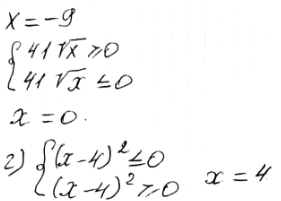 x = -9
{ 41√x ≥ 0
{ 41√x ≤ 0
x = 0.
г) { (x-4)² ≤ 0
{ (x-4)² ≥ 0 x = 4